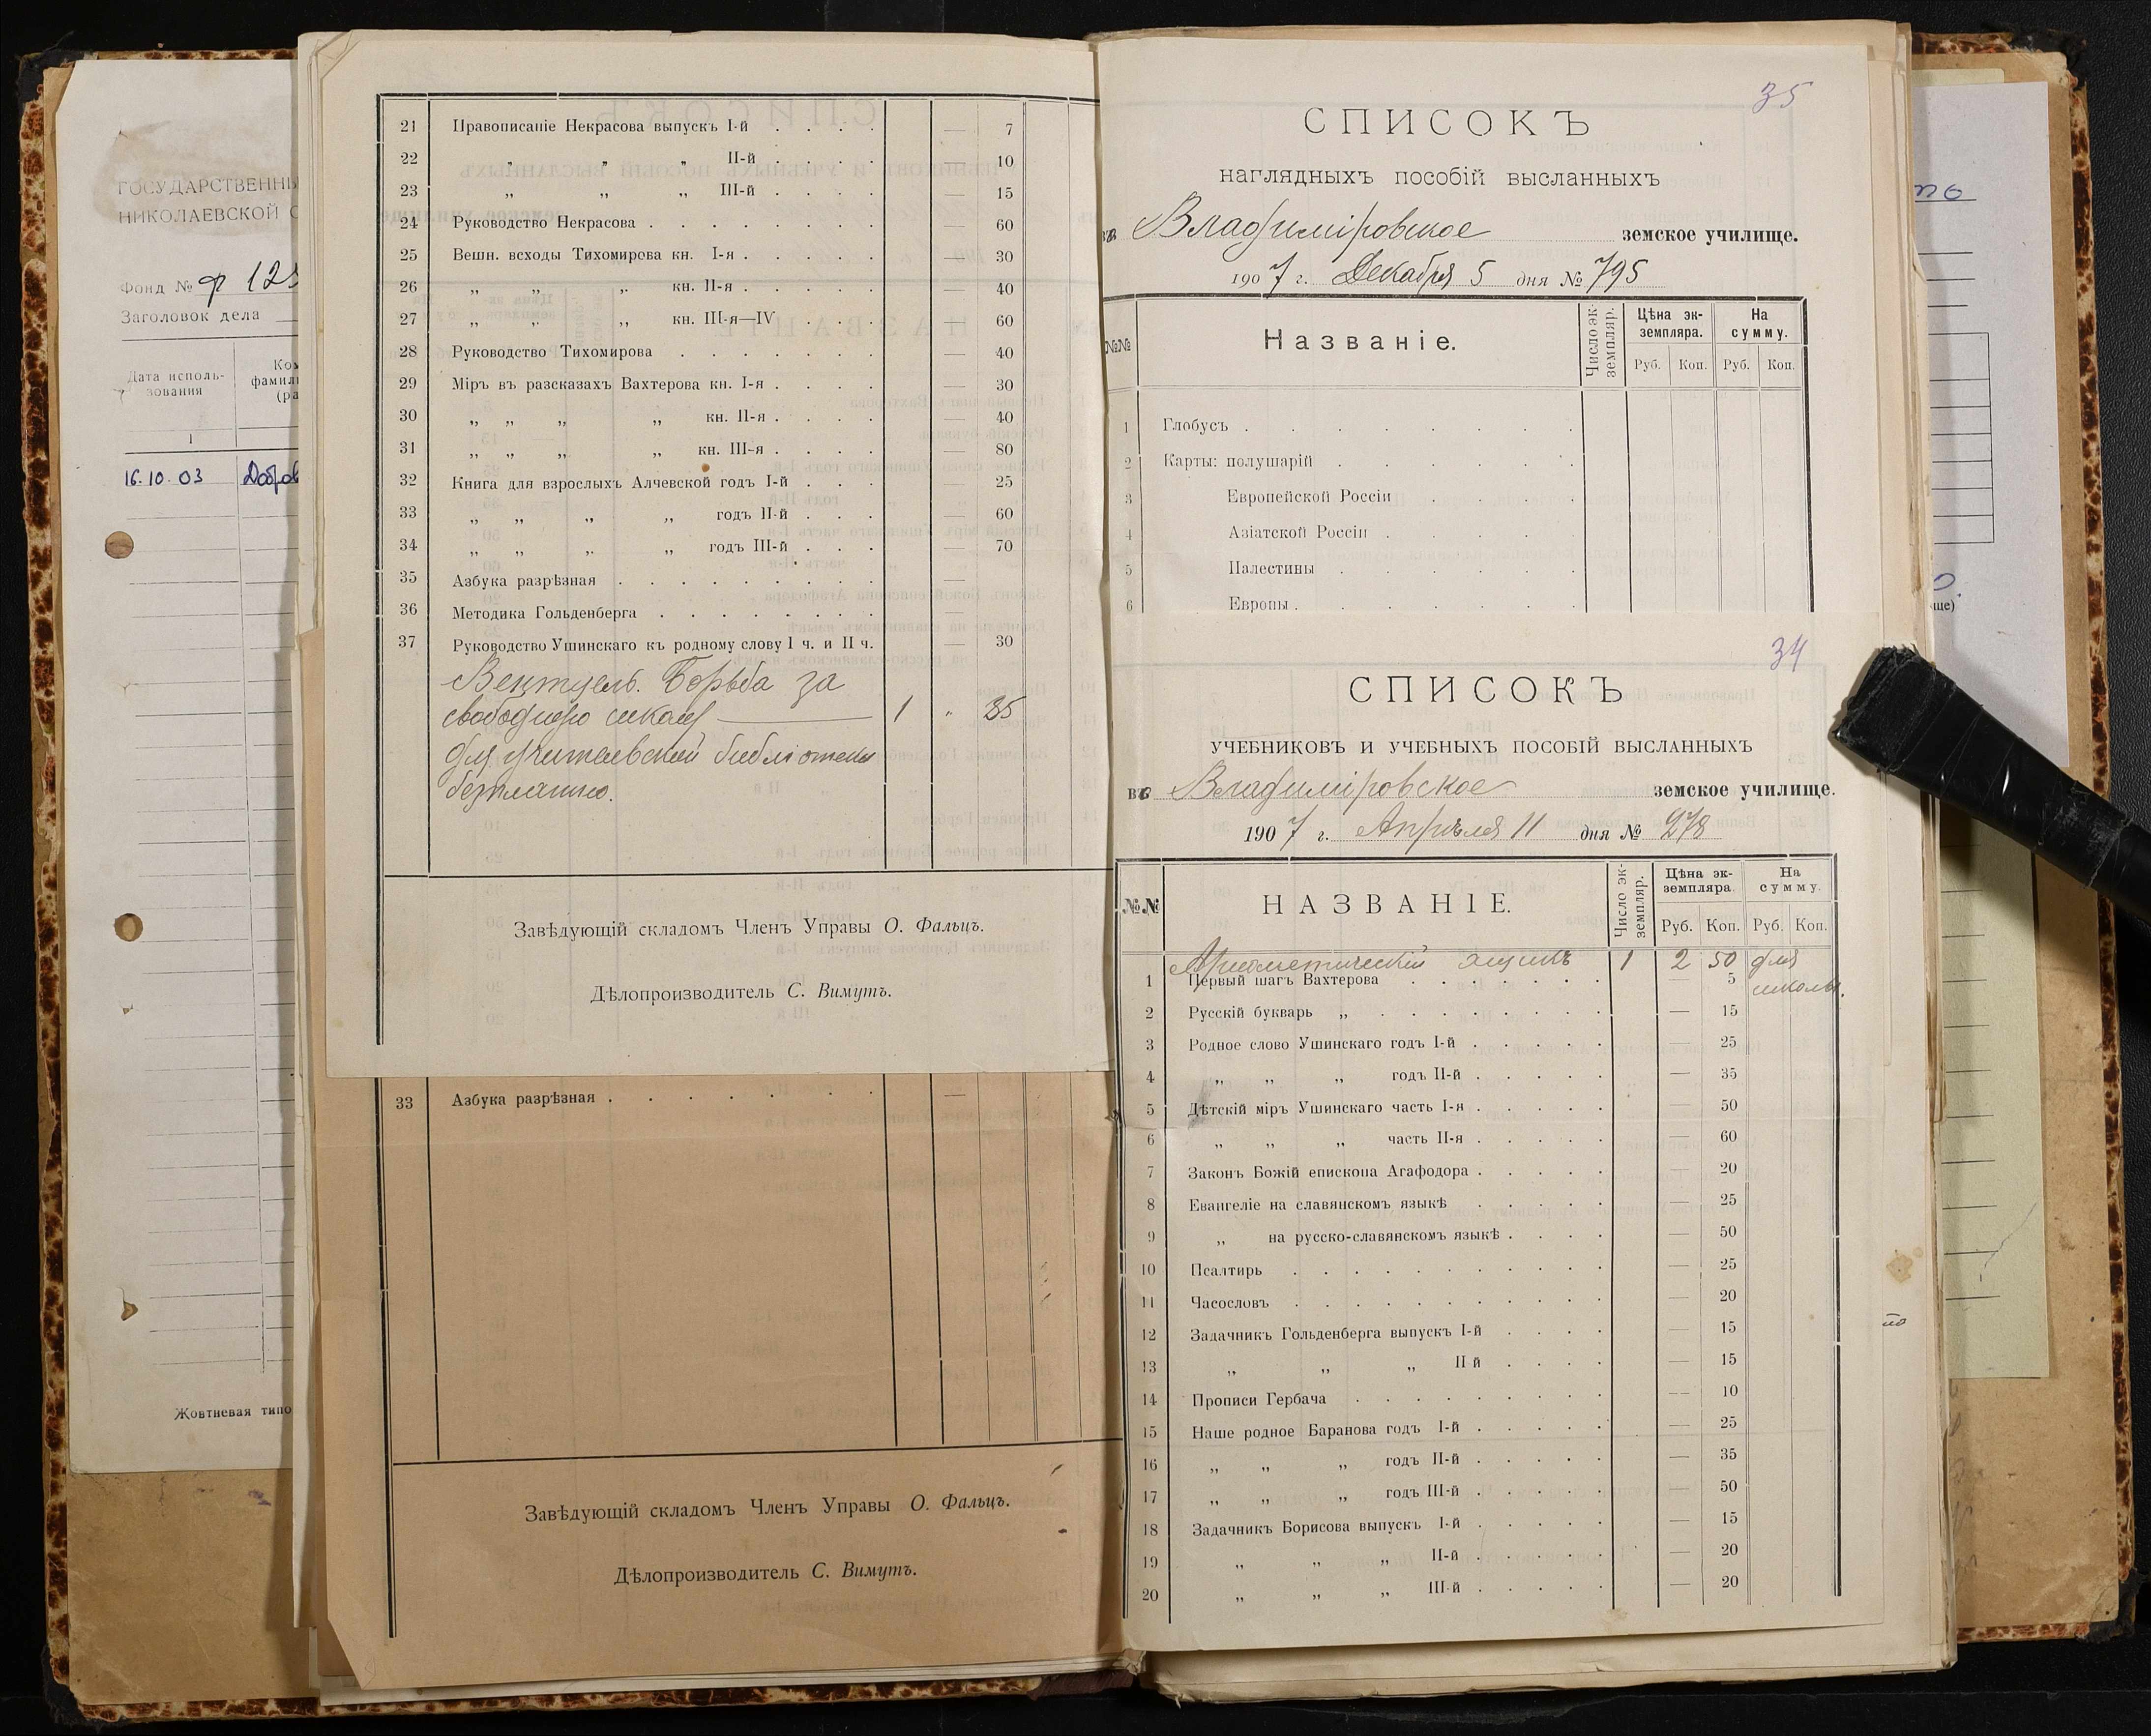 ГОСУДАРСТВЕННЫ
НИКОЛАЕВСКОЙ О
Фонд № Ф 125
Заголовок дела
Дата исполь-
зования
фамил
(ра
1
16.10.03 Добров
Жовтневая типо
21 Правописаніе Некрасова выпускъ I-й . . . . — 7
22 „ „ „ II-й . . . . — 10
23 „ „ „ III-й . . . . — 15
24 Руководство Некрасова . . . . . . . . — 60
25 Вешн. всходы Тихомирова кн. I-я . . . . . — 30
26 „ „ „ кн. II-я . . . . . — 40
27 „ „ „ кн. III-я—IV . . . — 60
28 Руководство Тихомирова . . . . . . . — 40
29 Міръ въ разсказахъ Вахтерова кн. I-я . . . . — 30
30 „ „ „ „ кн. II-я . . . . — 40
31 „ „ „ „ кн. III-я . . . . — 80
32 Книга для взрослыхъ Алчевской годъ I-й . . . — 25
33 „ „ „ „ годъ II-й . . . — 60
34 „ „ „ „ годъ III-й . . . — 70
35 Азбука разрѣзная . . . . . . . . . —
36 Методика Гольденберга . . . . . . . —
37 Руководство Ушинскаго къ родному слову I ч. и II ч. — 30
Вентцель. Борьба за
свободную школу — 1 „ 35
для учительской библіотеки
безплатно.
Завѣдующій складомъ Членъ Управы О. Фальцъ.
Дѣлопроизводитель С. Вимутъ.
33 Азбука разрѣзная . . . . . . . . —
Завѣдующій складомъ Членъ Управы О. Фальцъ.
Дѣлопроизводитель С. Вимутъ.
35
СПИСОКЪ
наглядныхъ пособій высланныхъ
въ Владиміровское земское училище.
1907 г. Декабря 5 дня № 795
№№ Названіе. Число эк-земпляр. Цѣна эк-земпляра. На сумму.
Руб. Коп. Руб. Коп.
1 Глобусъ . . . . . . . .
2 Карты: полушарій . . . . . .
3 Европейской Россіи . . .
4 Азіатской Россіи . . . . .
5 Палестины . . . . . .
6 Европы . . . . . . .
34
СПИСОКЪ
УЧЕБНИКОВЪ И УЧЕБНЫХЪ ПОСОБІЙ ВЫСЛАННЫХЪ
въ Владиміровское земское училище.
1907 г. Апрѣля 11 дня № 278
№№ НАЗВАНІЕ. Число эк-земпляр. Цѣна эк-земпляра. На сумму.
Руб. Коп. Руб. Коп.
Ариѳметическій ящикъ 1 2 50 для
школы.
1 Первый шагъ Вахтерова . . . . . . . — 5
2 Русскій букварь „ . . . . . . . . — 15
3 Родное слово Ушинскаго годъ I-й . . . . . — 25
4 „ „ „ годъ II-й . . . . . — 35
5 Дѣтскій міръ Ушинскаго часть I-я . . . . . — 50
6 „ „ „ часть II-я . . . . . — 60
7 Законъ Божій епископа Агафодора . . . . . — 20
8 Евангеліе на славянскомъ языкѣ . . . . . — 25
9 „ на русско-славянскомъ языкѣ . . . . — 50
10 Псалтирь . . . . . . . . . . . — 25
11 Часословъ . . . . . . . . . . . — 20
12 Задачникъ Гольденберга выпускъ I-й . . . . — 15
13 „ „ „ II-й . . . . — 15
14 Прописи Гербача . . . . . . . . . — 10
15 Наше родное Баранова годъ I-й . . . . . — 25
16 „ „ „ годъ II-й . . . . . — 35
17 „ „ „ годъ III-й . . . . . — 50
18 Задачникъ Борисова выпускъ I-й . . . . . — 15
19 „ „ „ II-й . . . . . — 20
20 „ „ „ III-й . . . . . — 20